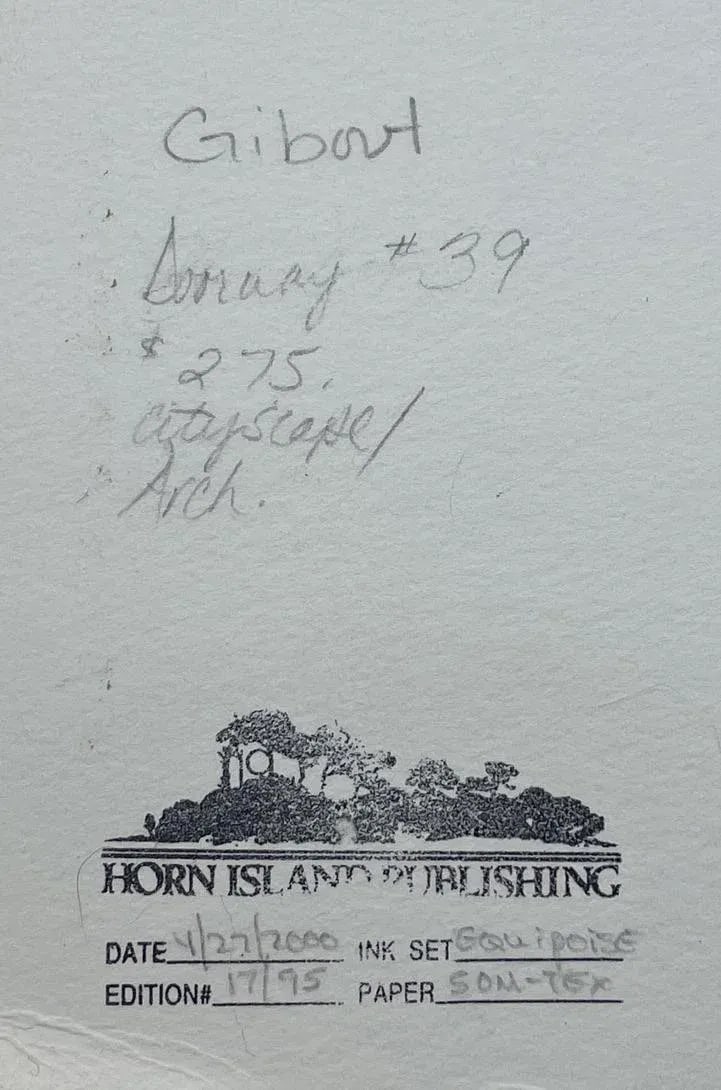 Gibout
Doorway #39
$275.
Cityscape/
Arch.
HORN ISLAND PUBLISHING
DATE 4/27/2000 INK SET EQUIPOISE
EDITION# 17/95 PAPER SOM-TEX